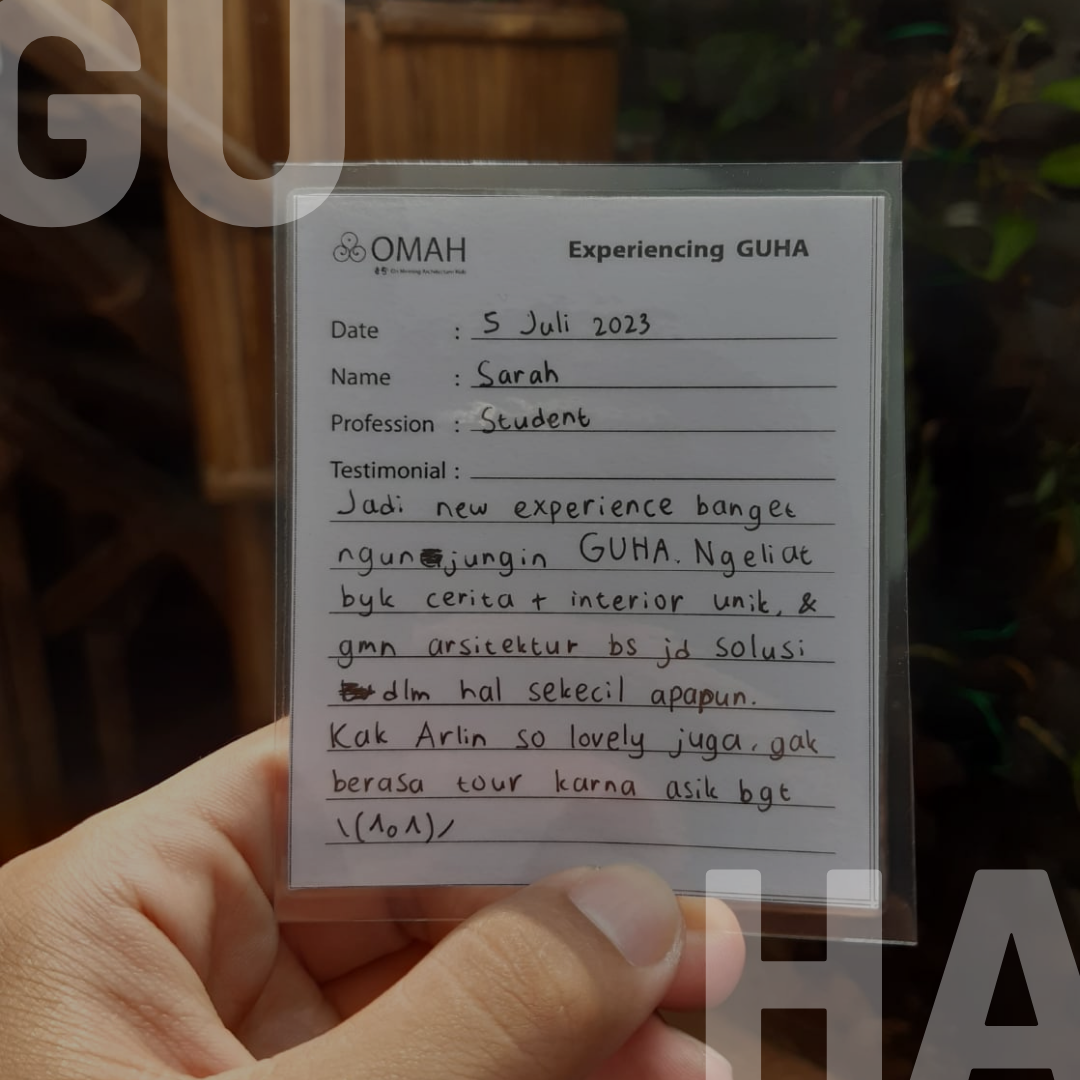 GU
OMAH
Experiencing GUHA
Date : 5 Juli 2023
Name : Sarah
Profession : Student
Testimonial :
Jadi new experience banget
ngunjungin GUHA. Ngeliat
byk cerita + interior unik, &
gmn arsitektur bs jd solusi
dlm hal sekecil apapun.
Kak Arlin so lovely juga, gak
berasa tour karna asik bgt
\(^o^)/
HA